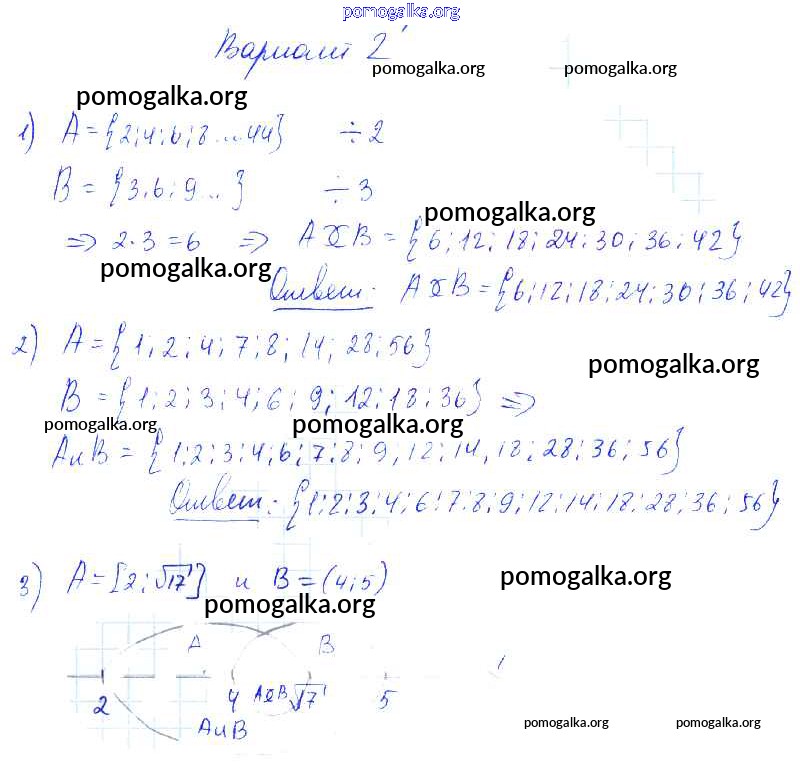 pomogalka.org
Вариант 2
pomogalka.org pomogalka.org
pomogalka.org
1) A = {2; 4; 6; 8 ... 44} ÷ 2
B = {3; 6; 9 ...} ÷ 3
pomogalka.org
=> 2·3 = 6 => A и B = {6; 12; 18; 24; 30; 36; 42}
pomogalka.org
Ответ: A и B = {6; 12; 18; 24; 30; 36; 42}
2) A = {1; 2; 4; 7; 8; 14; 28; 56}
pomogalka.org
B = {1; 2; 3; 4; 6; 9; 12; 18; 36} =>
pomogalka.org pomogalka.org
A и B = {1; 2; 3; 4; 6; 7; 8; 9; 12; 14, 18; 28; 36; 56}
Ответ: {1; 2; 3; 4; 6; 7; 8; 9; 12; 14; 18; 28; 36; 56}
3) A = [2; √17] и B = (4; 5)
pomogalka.org
pomogalka.org
A B
2 4 √17 5
A и B
pomogalka.org pomogalka.org